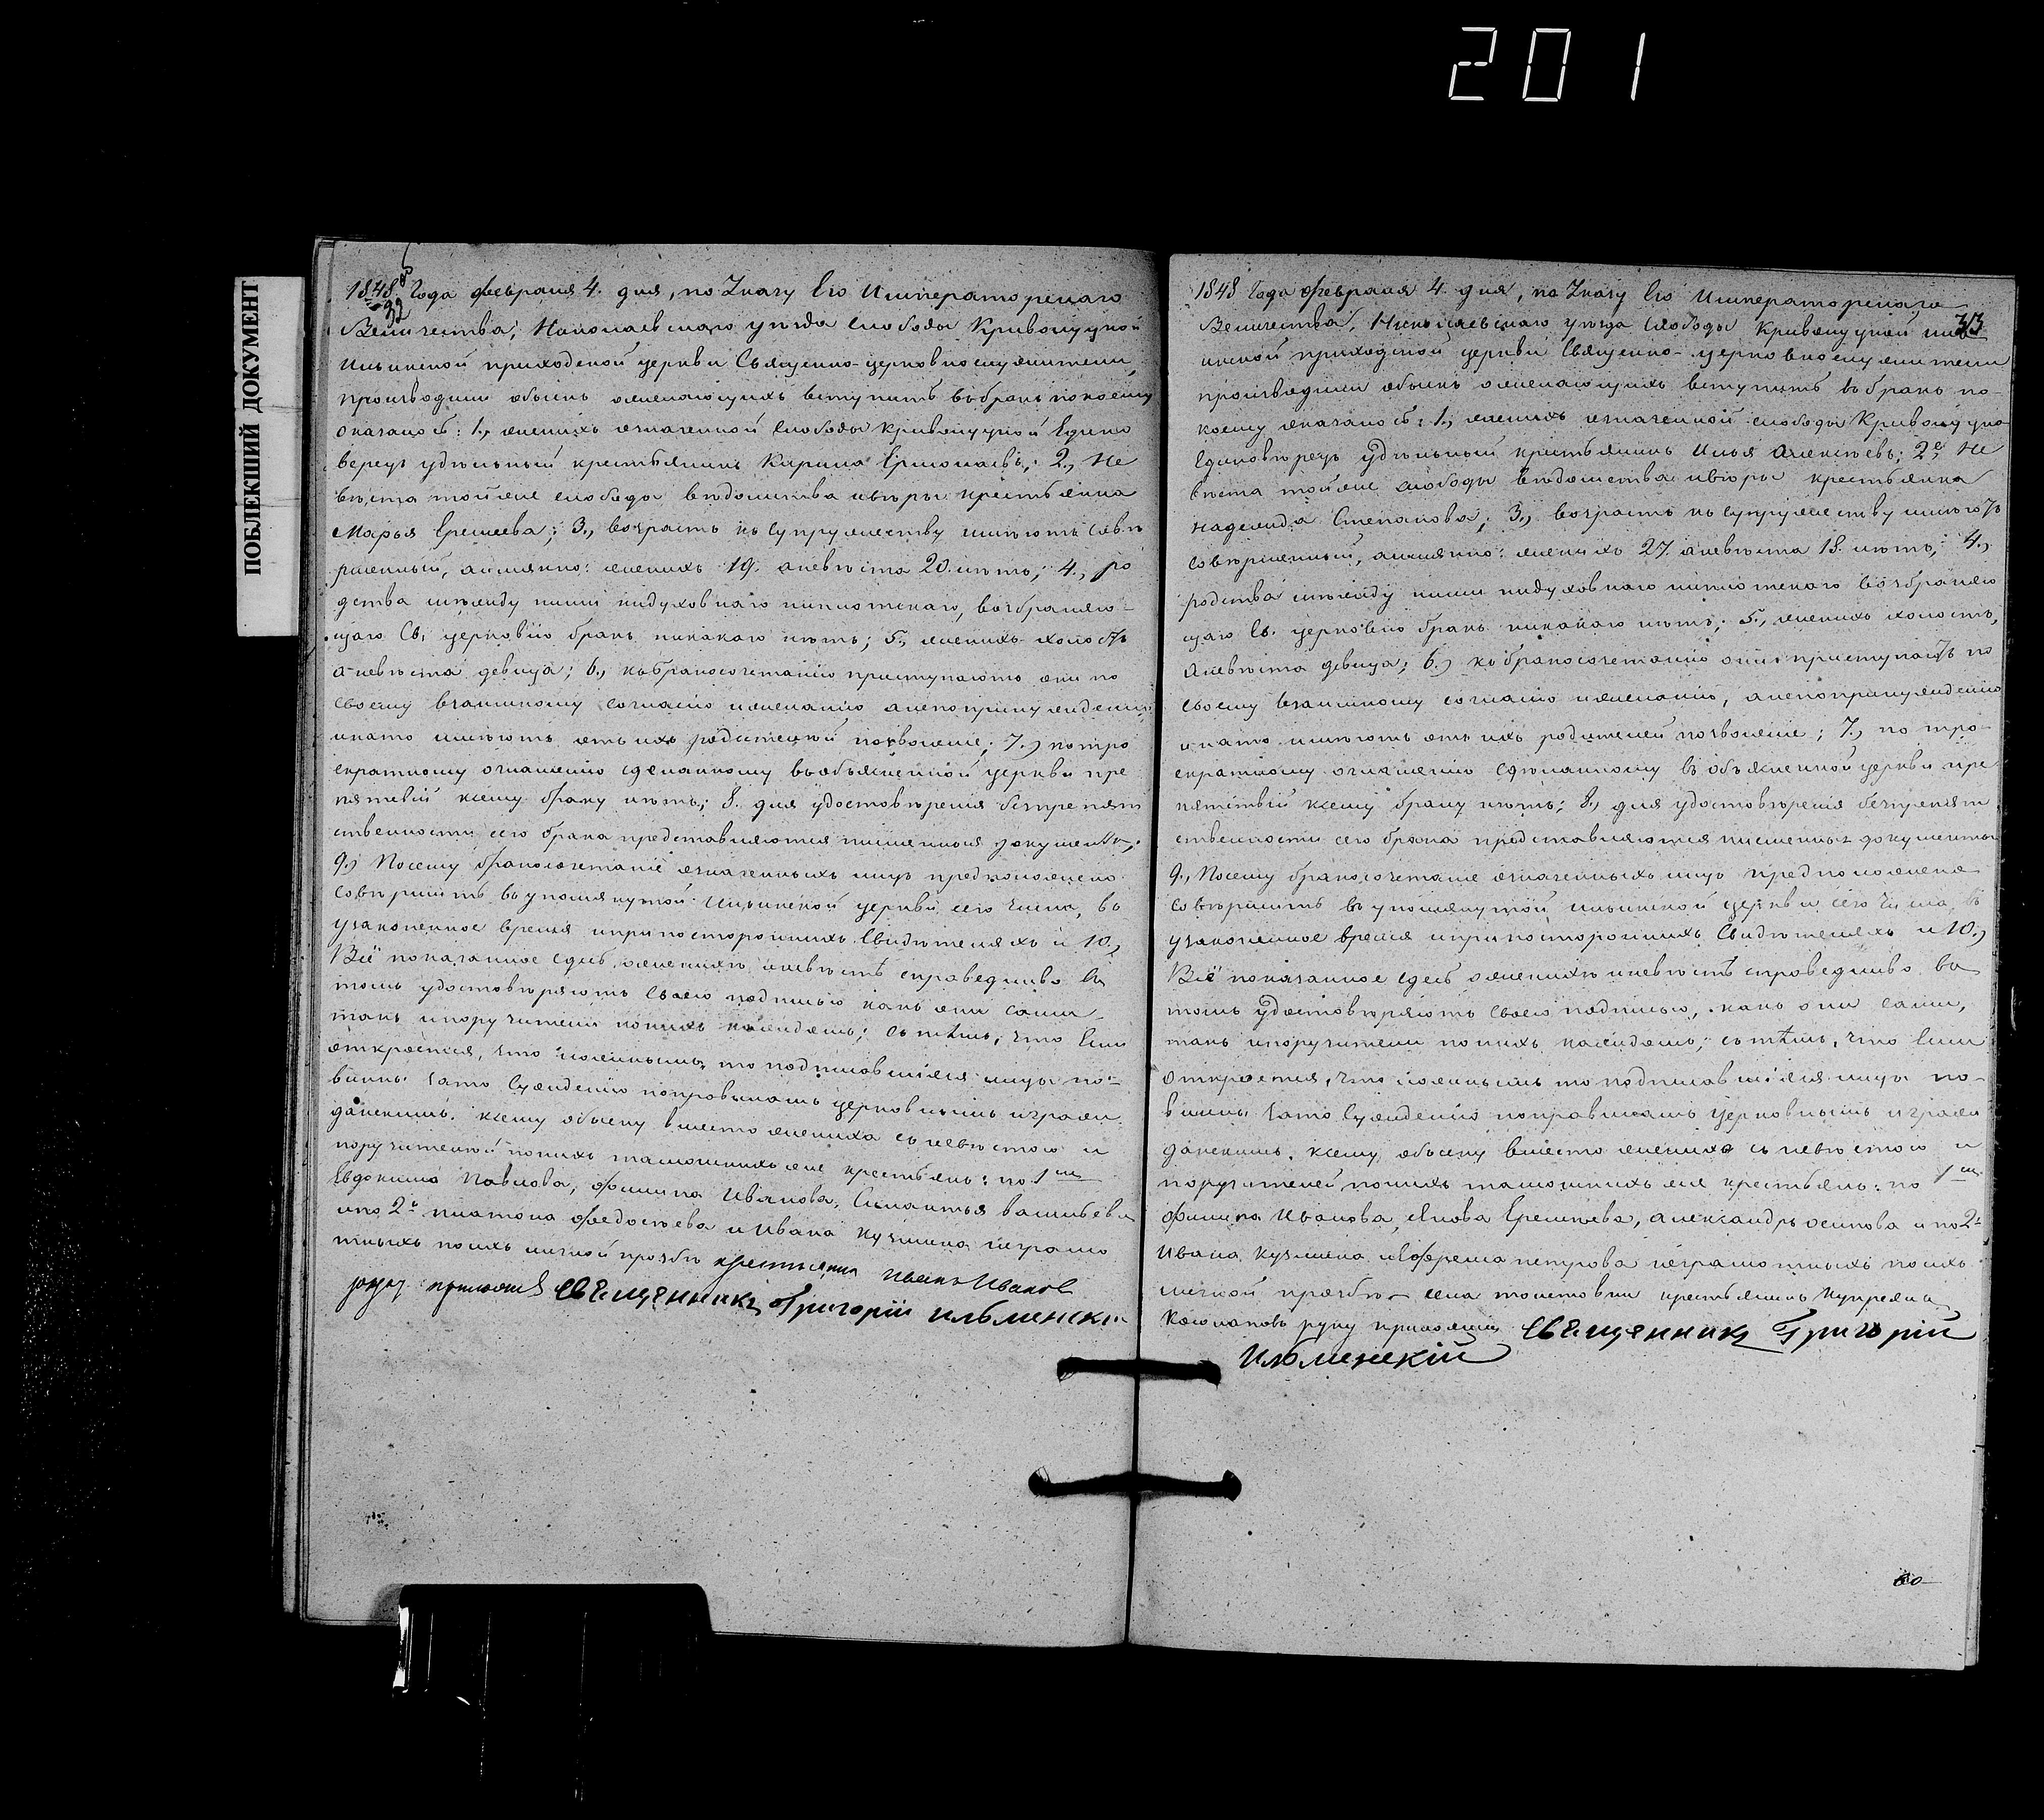 201
ПОБЛЕКШИЙ ДОКУМЕНТ
1848 Года февраля 4. дня, по Указу Его Императорскаго
Величества, Николаевскаго уезда слободы Криволуцкой
Ильинской приходской церкви Священно-церковнослужители,
производили обыскъ о желающихъ вступить въ бракъ по коему
оказалось: 1., женихъ означенной слободы Криволуцкой Едино
верецъ удѣльный крестьянинъ Карила Ермолаевъ; 2., Не
вѣста той же слободы вѣдомства и вѣры крестьянка
Марья Еремеева; 3., возрастъ къ супружеству имѣютъ совѣ
ршенный, а имянно: женихъ 19. а невѣста 20. лѣтъ; 4., ро
дства между ними ни духовнаго ни плотскаго, возбраняю-
щаго Св. церковію бракъ никакаго нѣтъ; 5., женихъ холостъ
а невѣста девица; 6., къ бракосочетанію приступаютъ они по
своему взаимному согласію и желанію а не по принужденію
и на то имѣютъ отъ ихъ родителей позволеніе; 7., по тро
екратному оглашенію сделанному въ объявленной церкви пре
пятствій к сему браку нѣтъ; 8. для удостовѣренія безпрепят
ственности сего брака представляются писменныя документы;
9., Посему бракосочетаніе означенныхъ лицъ предположено
совѣршить въ упомянутой Ильинской церкви сего числа, въ
узаконенное время и при постороннихъ Свидѣтеляхъ и 10.,
Всё показанное сдѣсь о женихѣ и невѣстѣ справедливо въ
томъ удостовѣряютъ своею подписью какъ они сами
такъ и поручители по нихъ каждомъ; съ тѣмъ, что Если
откроется, что ложнымъ, то подписовшіяся лицы по-
винны за то Сужденію по правиламъ церковнымъ и граж
данскимъ. К сему обыску вместо жениха съ невѣстою и
поручителей по нихъ тамошнихъ же крестьянъ: по 1м
Евдокима Павлова, Филипа Иванова, Силантья Васильева
и по 2й Платона Федосѣева и Ивана Кузмина неграмо
тныхъ по ихъ личной прозбѣ крестьянин Иванъ Иванов
руку приложил священникъ Григорій Ильменскій
1848 Года февраля 4. дня, по Указу Его Императорскаго
33
Величества, Николаевскаго уезда слободы Криволуцкой Иль
инской приходской церкви Священно-церковнослужители
производили обыскъ о желающихъ вступить въ бракъ по-
коему оказалось: 1., женихъ означенной слободы Криволуцко
Единовѣрецъ удѣльный крестьянинъ Илья Алексѣевъ; 2е, Не
вѣста той же слободы вѣдомства и вѣры крестьянка
Надежда Степанова; 3., возрастъ къ супружеству имѣютъ
совѣршенный, а имянно: женихъ 27. а невѣста 18. лѣтъ; 4.,
родства между ними ни духовнаго ни плотскаго возбраняю
щаго Св. церковію бракъ никакаго нѣтъ; 5., женихъ холостъ,
а невѣста девица; 6., къ бракосочетанію они приступаютъ по
своему взаимному согласію и желанію, а не по принужденію
и на то имѣютъ отъ ихъ родителей позволеніе; 7., по тро-
екратному оглашенію сдѣланному въ объявленной церкви пре
пятствій к сему браку нѣтъ; 8., для удостовѣренія безпрепят
ственности сего брака представляются писменныя документы
9., Посему бракосочетаніе означенныхъ лицъ предположено
совѣршить въ упомянутой Ильинской церкви сего числа, въ
узаконенное время и при постороннихъ Свидѣтеляхъ и 10.,
Всё показанное сдѣсь о женихѣ и невѣстѣ справедливо въ
томъ удостовѣряютъ своею подписью, какъ они сами,
такъ и поручители по нихъ каждомъ; съ тѣмъ, что Если
откроется, что ложнымъ то подписовшіяся лицы по-
винны за то Сужденію по правиламъ церковнымъ и граж
данскимъ. К сему обыску вместо жениха съ невѣстою и
поручителей по нихъ тамошнихъ же крестьянъ: по 1м
Филипа Иванова, Якова Еремѣева, Александръ Осипова и по 2й
Ивана Кузмина и Ефрема Петрова неграмотныхъ по ихъ
личной прозбѣ села Толстовки крестьянинъ Купреянъ
руку приложилъ священникъ Григорій
Ильменскій